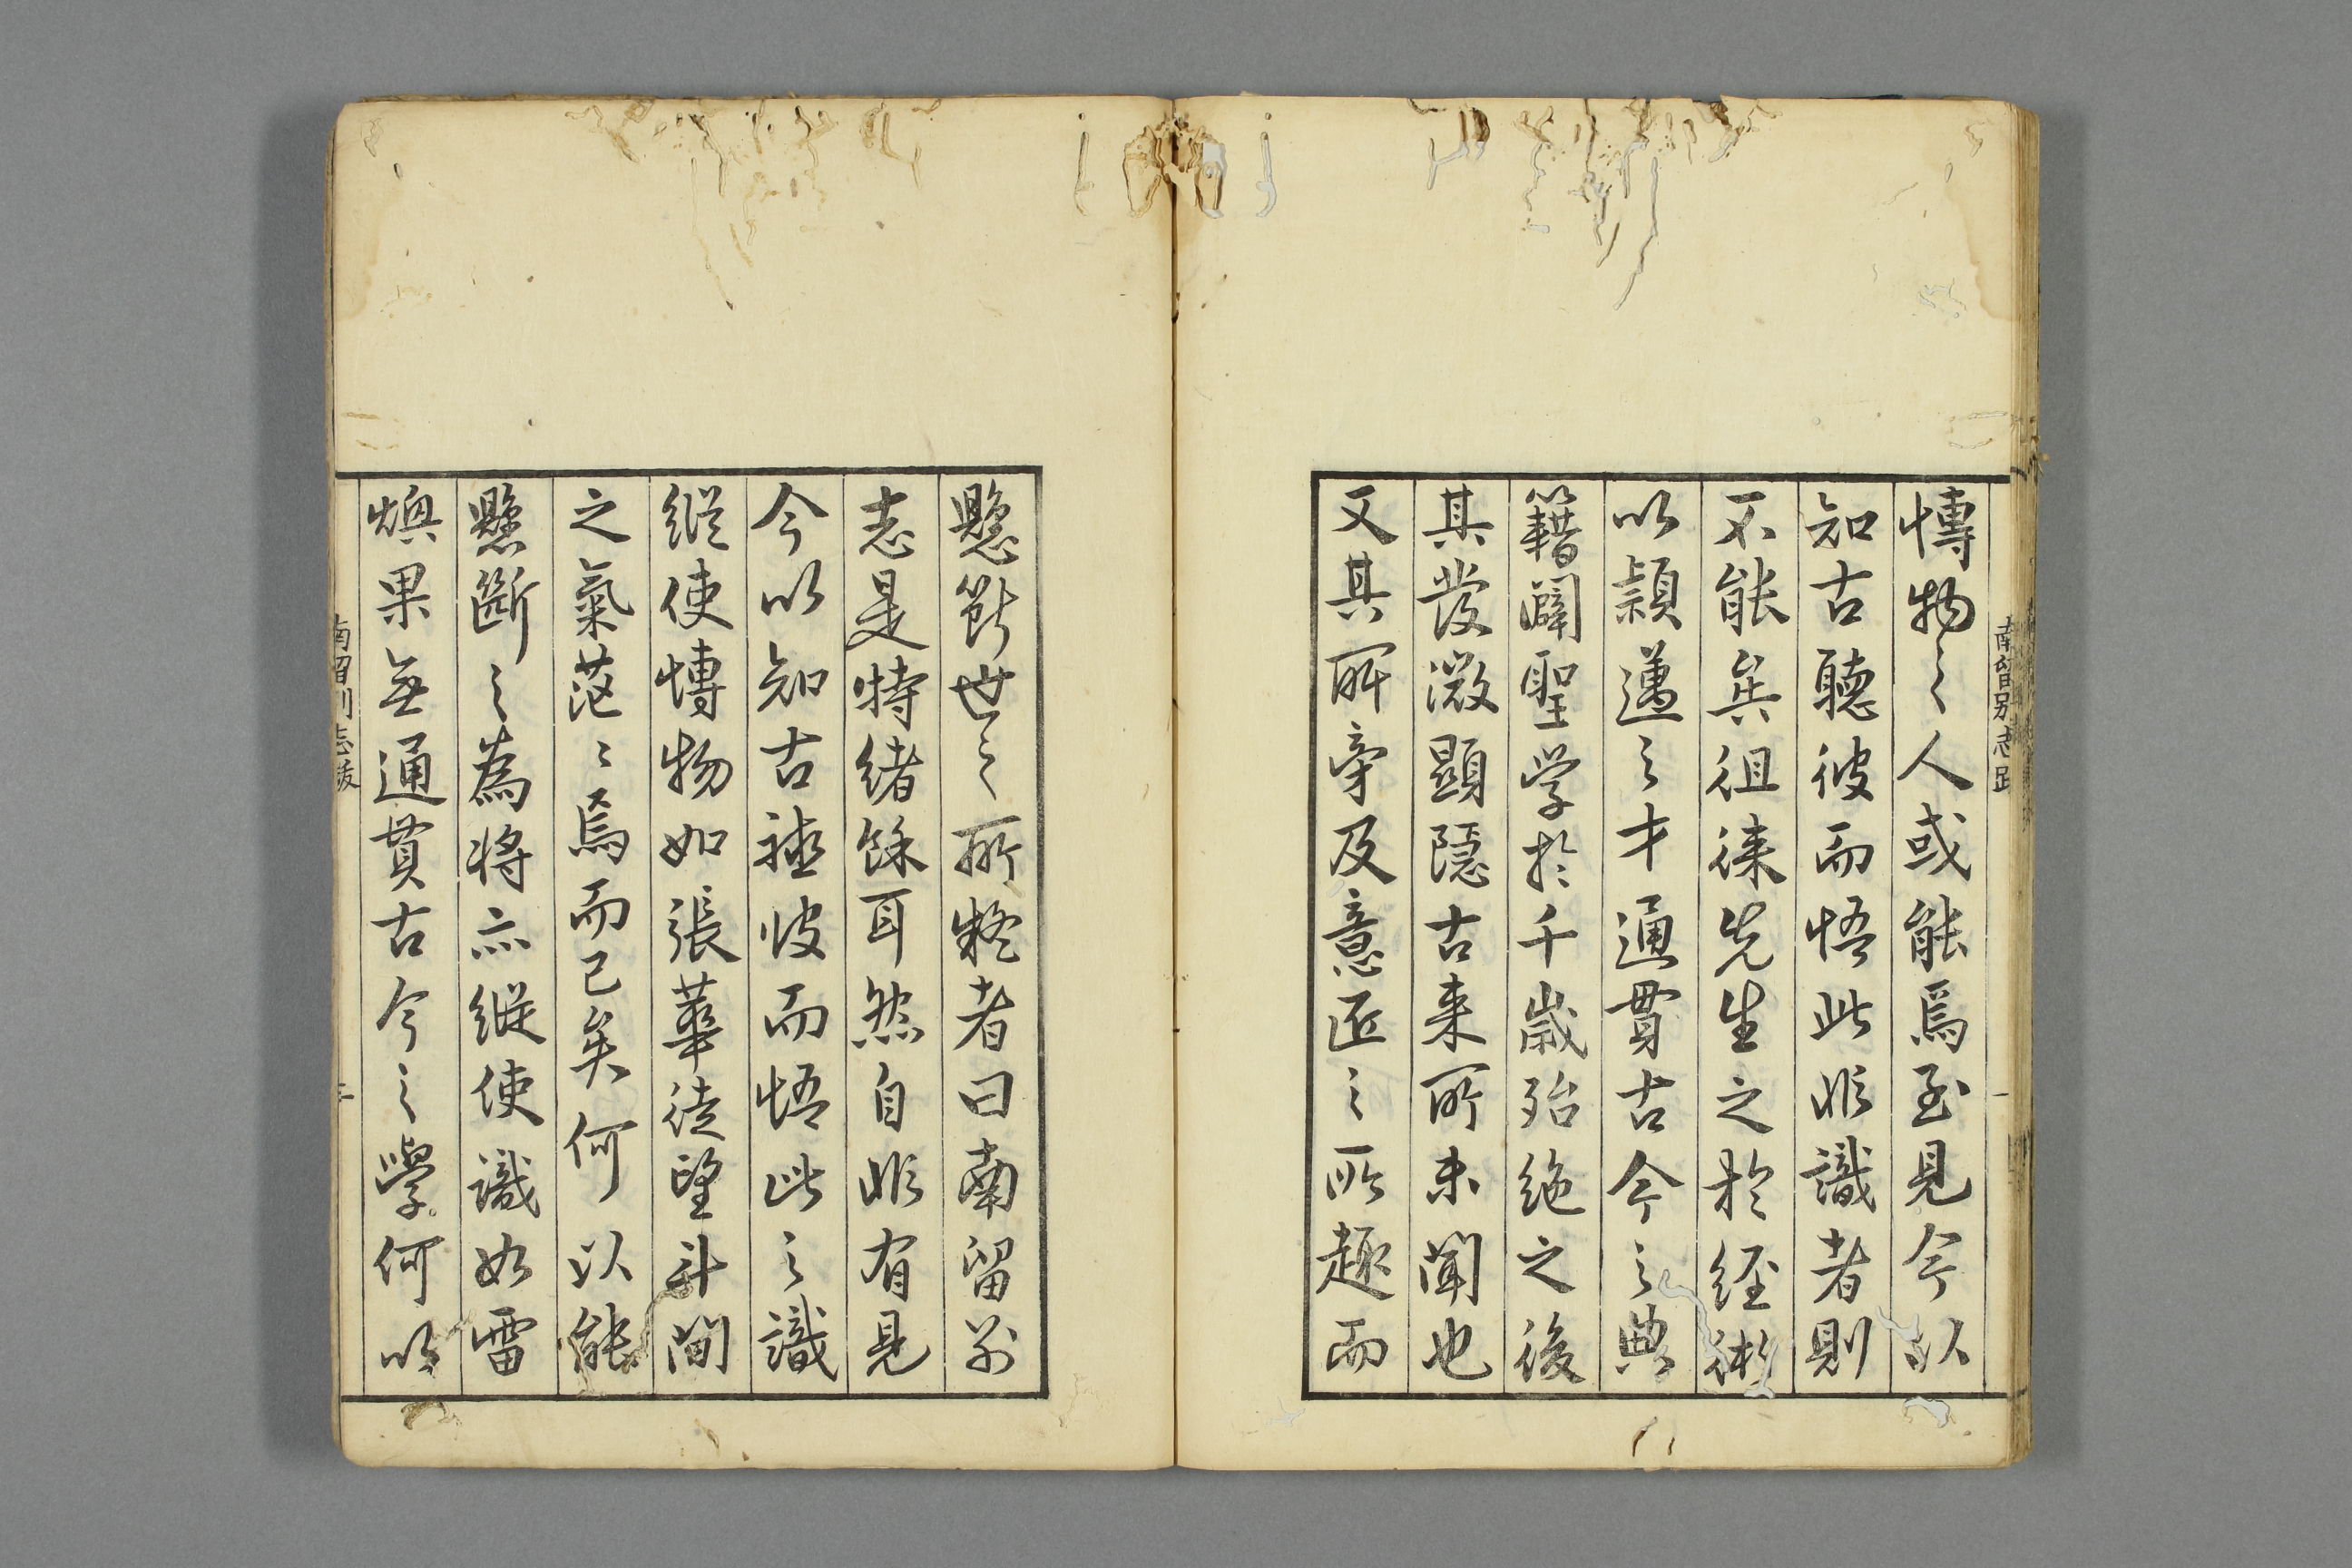 博物之人或能焉至見今以
知古聽彼而悟此非識者則
不能矣徂徠先生之於經術
以穎邁之才通貫古今之典
籍闡聖学於千歲殆絕之後
其發微顯隱古來所未聞也
又其所旁及意匠之所趣而
懸斷世之所疑者曰南留別
志是特緒餘耳然自非有見
今以知古聽彼而悟此之識
縱使博物如張華徒望斗間
之氣茫々焉而已矣何以能
懸斷之為將亦縱使識如雷
煥果無通貫古今之學何以